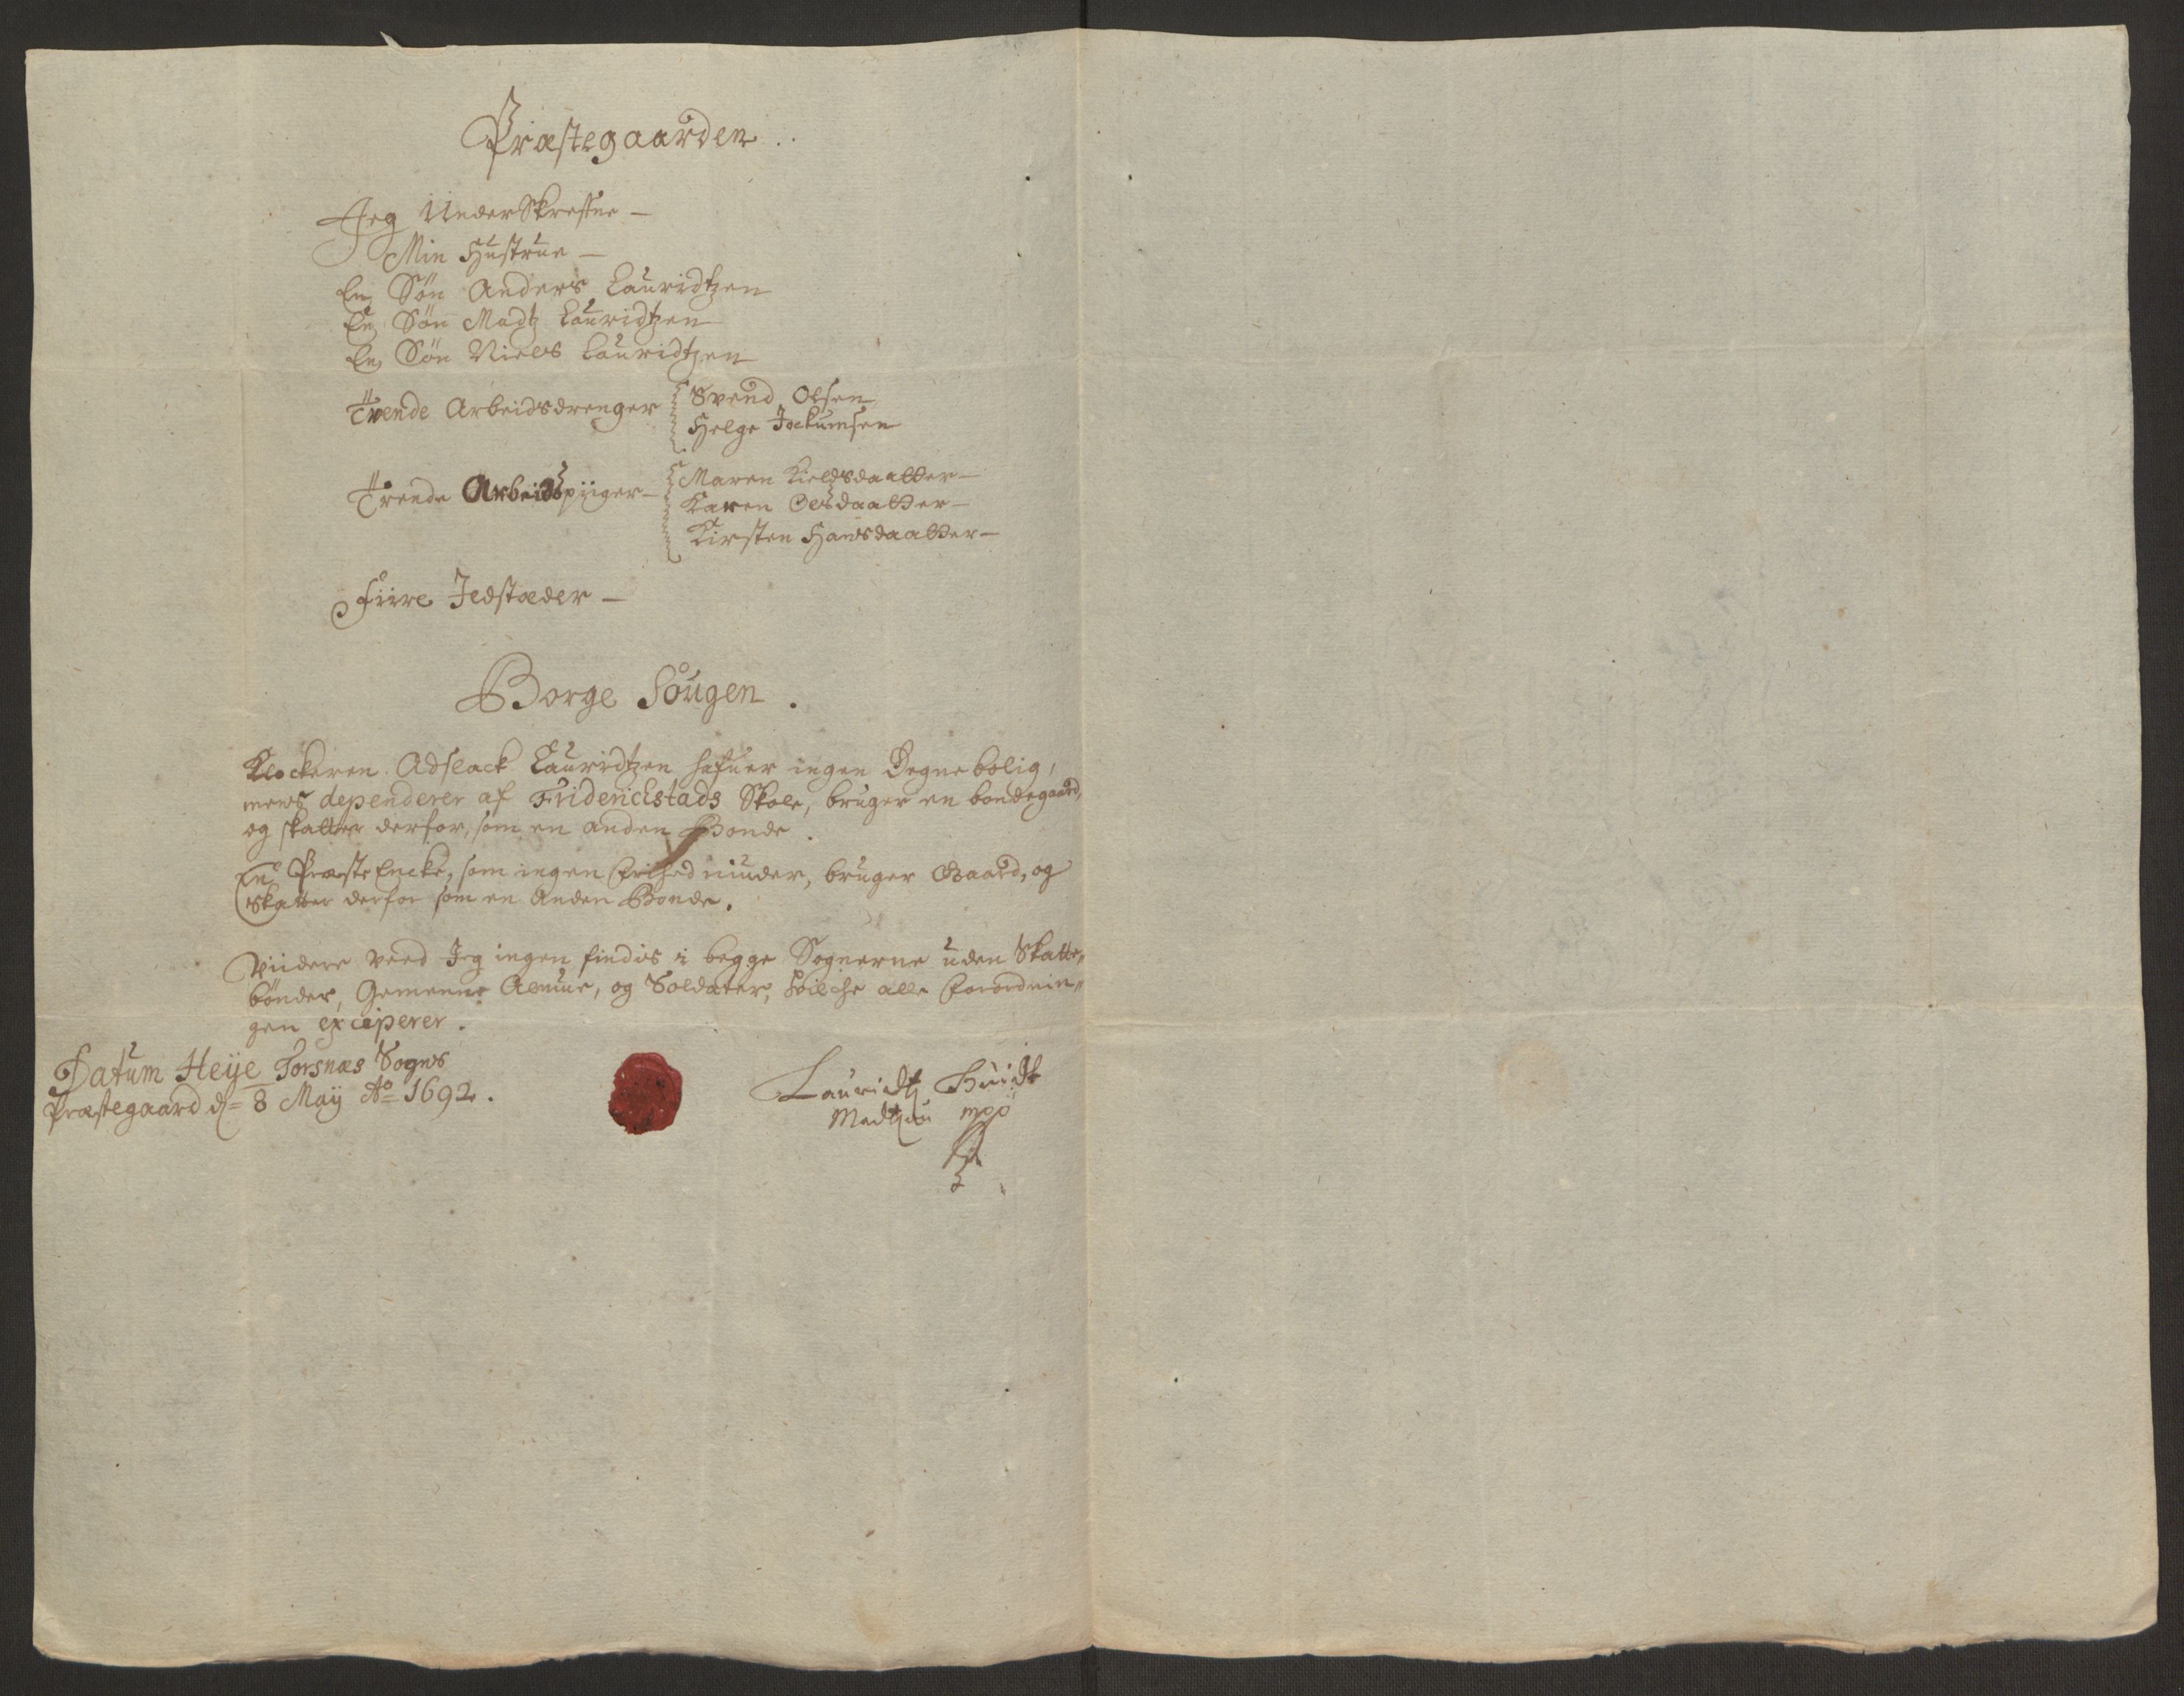 Præstegaarden..
Jeg UnderSkrefne —
Min Hustrue —
En Søn Anders Lauridtzen
En Søn Madtz Lauridtzen
En Søn Niels Lauridtzen
Tvende Arbeidsdrenger
Svend Olsen
Helge Jockumsen
Trende Arbeidspiiger —
Maren Kieldsdaatter —
Karen Olsdaatter —
Kirsten Hansdaatter —
Fiire Ildstæder —
Borge Sougen.
Klockeren Adslack Lauridtzen hafuer ingen Degnebolig,
mens dependerer af Friderichstads Skole, bruger en bondegaard,
og skatter derfor, som en anden Bonde.
En Præste Encke, som ingen frihed niuder, bruger Gaard, og
Skatter derfor som en Anden Bonde.
Viidere veed Jeg ingen findis i begge Sognerne uden Skatte„
bønder, Gemeene Almue, og Soldater, hvilche alle forordnin„
gen exciperer.
Datum Heÿe Torsnæs Sogns
Præstegaard d= 8 Maÿ Ao 1692.
Lauridtz Huidt
Madtzøn mpp